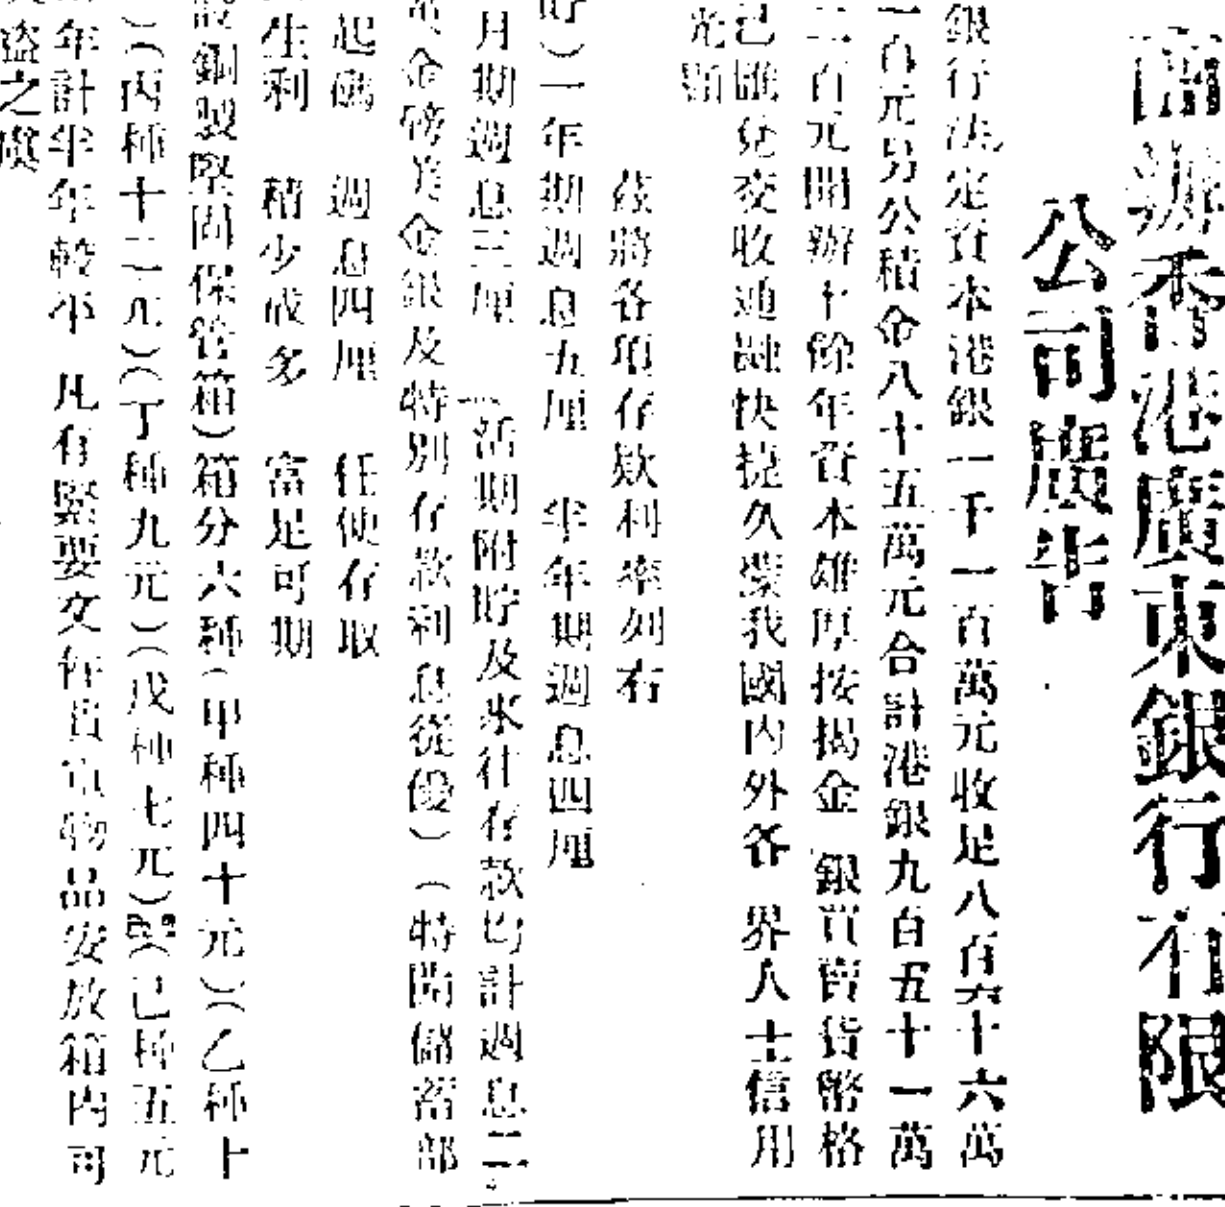 商辦香港廣東銀行有限
公司廣告
銀行法定資本港銀一千一百萬元收足八百六十六萬
一百元另公積金八十五萬元合計港銀九百五十一萬
二百元開辦十餘年資本雄厚按揭金銀買賣貨幣格
己匯兌交收通融快捷久蒙我國內外各界人士信用
光顧
茲將各項存款利率列右
貯）一年期週息五厘 半年期週息四厘
月期週息三厘 活期附貯及來往存款均計週息二
金磅美金銀及特別存款利息從優）（特開儲蓄部
起碼 週息四厘 任便存取
生利 積少成多 富足可期
設鋼製堅固保管箱）箱分六種（甲種四十元）（乙種十
）（丙種十二元）（丁種九元）（戊種七元）（己種五元
年計半年年較平 凡有緊要文件貴重物品安放箱內可
盜之虞